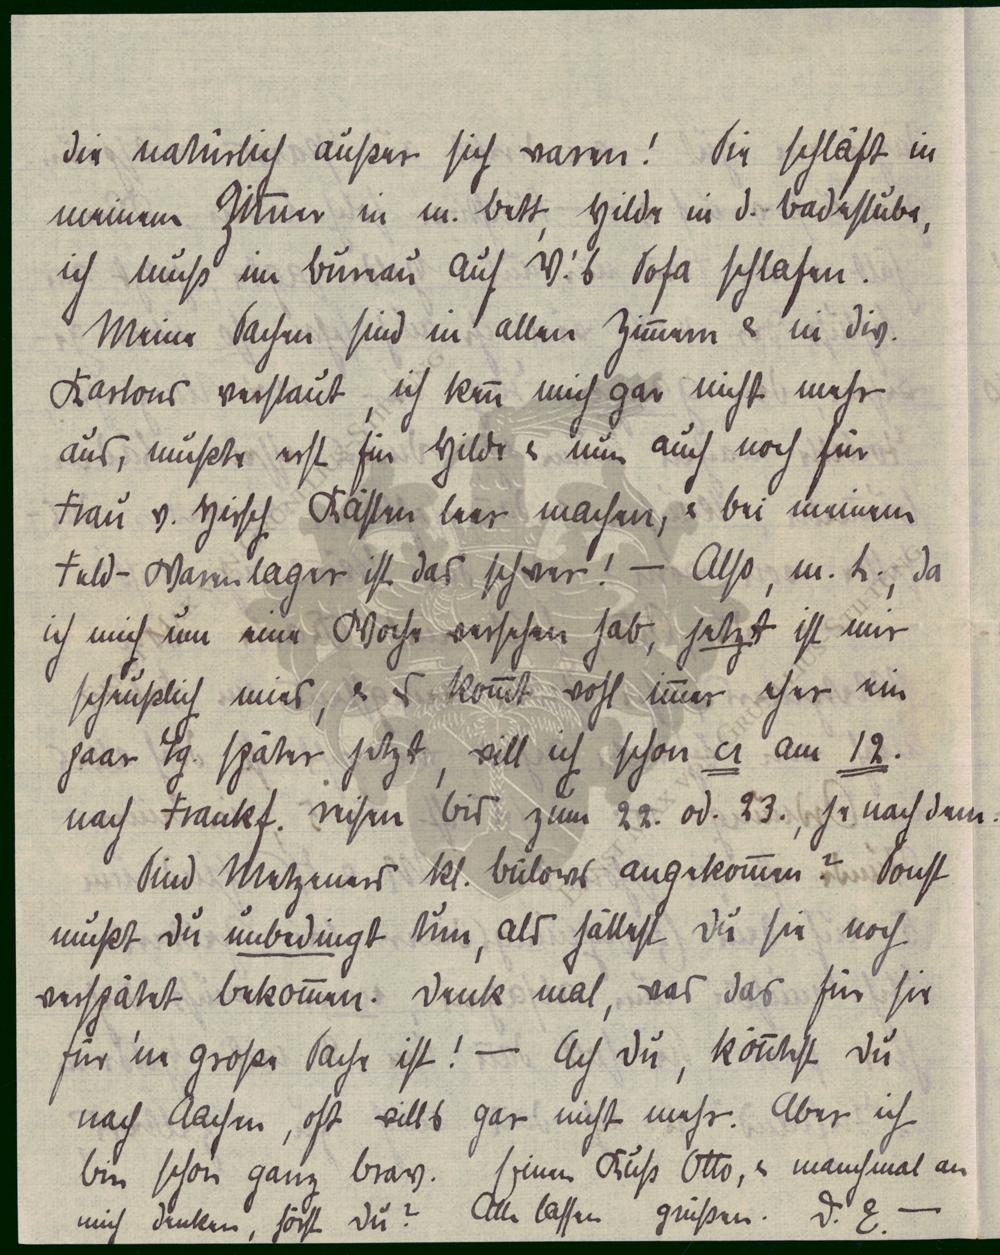 die natürlich außer sich waren! Sie schläft in
meinem Zim̅er in m. bett, Hilde in d. badestube,
ich muß im bureau auf V.'s Sofa schlafen.
Meine Sachen sind in allen Zim̅ern & in div.
Kartons verstaut, ich ken̅ mich gar nicht mehr
aus, mußte erst für Hilde & nun auch noch für
Frau v. Hirsch Kästen leer machen, & bei meinem
Feld-Warenlager ist das schwer! — Also, m. L., da
ich mich um eine Woche versehen hab, jetzt ist mir
scheußlich mies, & es kom̅t wohl im̅er eher ein
paar Tg. später jetzt, will ich schon am 12.
nach Frankf. reisen bis zum 22. od. 23., je nachdem.
Sind Metzeners kl. bülows angekom̅en? Sonst
mußt du unbedingt tun, als hättest du sie noch
verspätet bekom̅en. Denk mal, was das für sie
für 'ne große Sache ist! — Ach du, kön̅test du
nach Aachen, oft will's gar nicht mehr. Aber ich
bin schon ganz brav. Kuß Otto, & manchmal an
mich denken, hörst du? Alle lassen grüßen. D. E. —